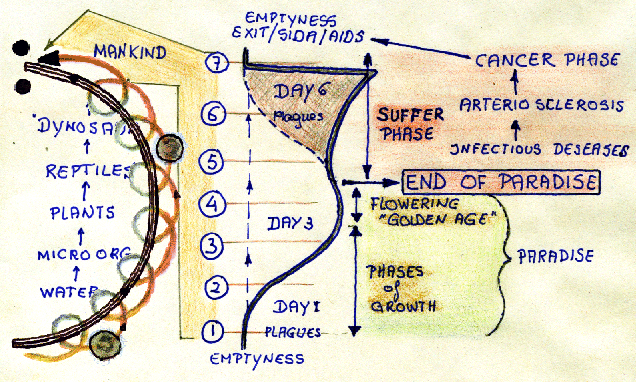 EMPTYNESS
EXIT/SIDA/AIDS
MANKIND
DYNOSAU
REPTILES
PLANTS
MICRO ORG
WATER
7
6
5
4
3
2
1
DAY 6
Plagues
DAY 3
DAY 1
PLAGUES
EMPTYNESS
SUFFER
PHASE
CANCER PHASE
ARTERIO SCLEROSIS
INFECTIOUS DESEASES
END OF PARADISE
FLOWERING
"GOLDEN AGE"
PHASES
of
GROWTH
PARADISE